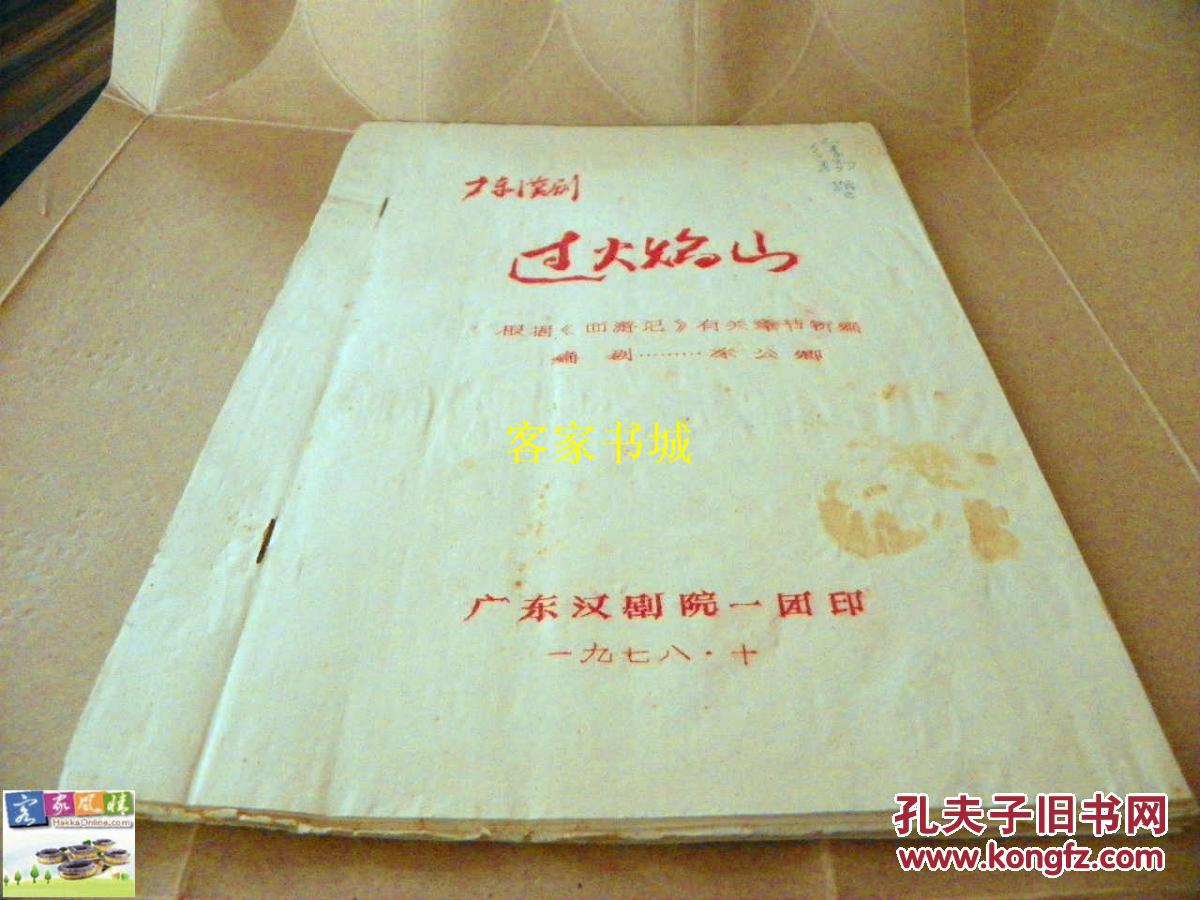 广东汉剧
过火焰山
根据《西游记》有关章节新编
编剧………余公卿
客家书城
广东汉剧院一团印
一九七八·十
客家风情
HakkaOnline.com
孔夫子旧书网
www.kongfz.com